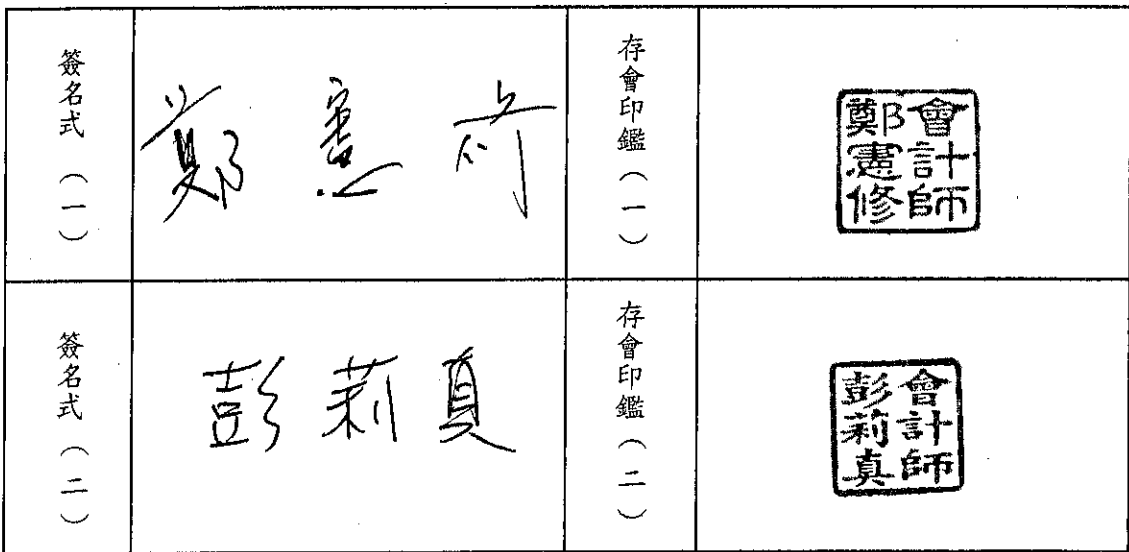 簽名式（一）
鄭憲修
存會印鑑（一）
會計師
鄭憲修
簽名式（二）
彭莉真
存會印鑑（二）
會計師
彭莉真